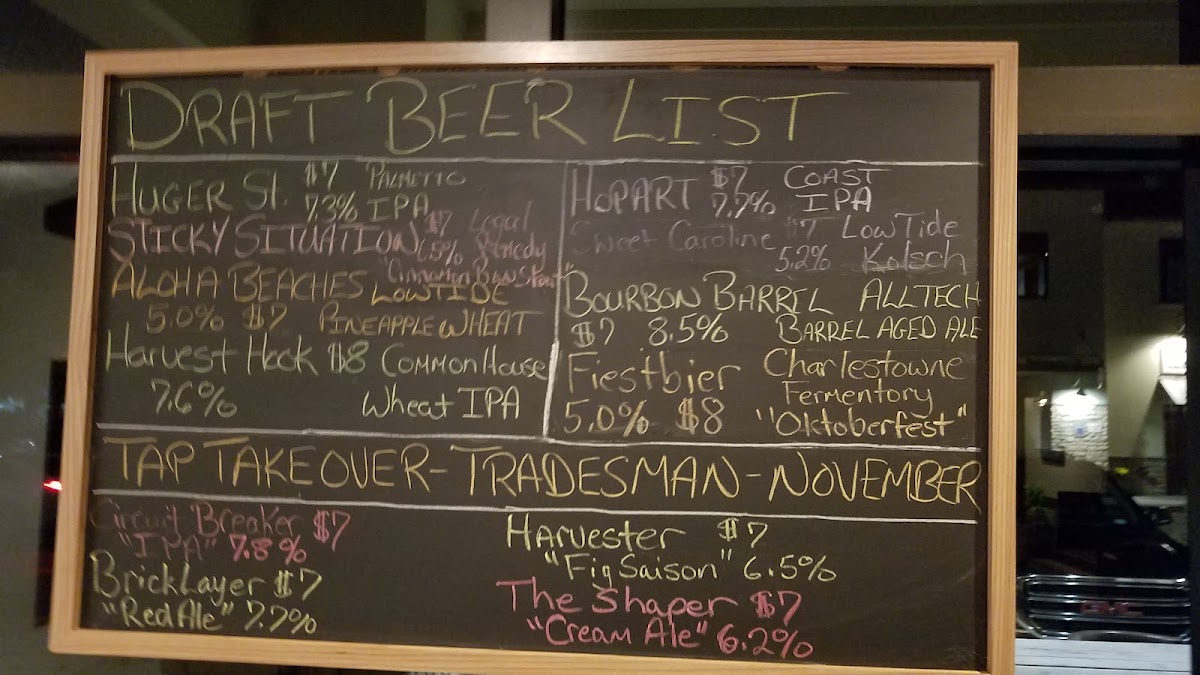 DRAFT BEER LIST
HUGER St. $7 PALMETTO
7.3% IPA
STICKY SITUATION $7 Legal
6.5% Remedy
"Cinnamon Bun Stout"
ALOHA BEACHES LOWTIDE
5.0% $7 PINEAPPLE WHEAT
Harvest Hook $8 COMMON HOUSE
7.6% Wheat IPA
HOPART $7 COAST
7.7% IPA
Sweet Caroline $7 LOW Tide
5.2% Kolsch
BOURBON BARREL ALLTECH
$7 8.5% BARREL AGED ALE
Fiestbier Charlestowne
Fermentory
5.0% $8 "Oktoberfest"
TAP TAKEOVER-TRADESMAN-NOVEMBER
Circuit Breaker $7
"IPA" 7.8%
BrickLayer $7
"Red Ale" 7.7%
HARVESTER $7
"Fig Saison" 6.5%
The Shaper $7
"Cream Ale" 6.2%
GMC